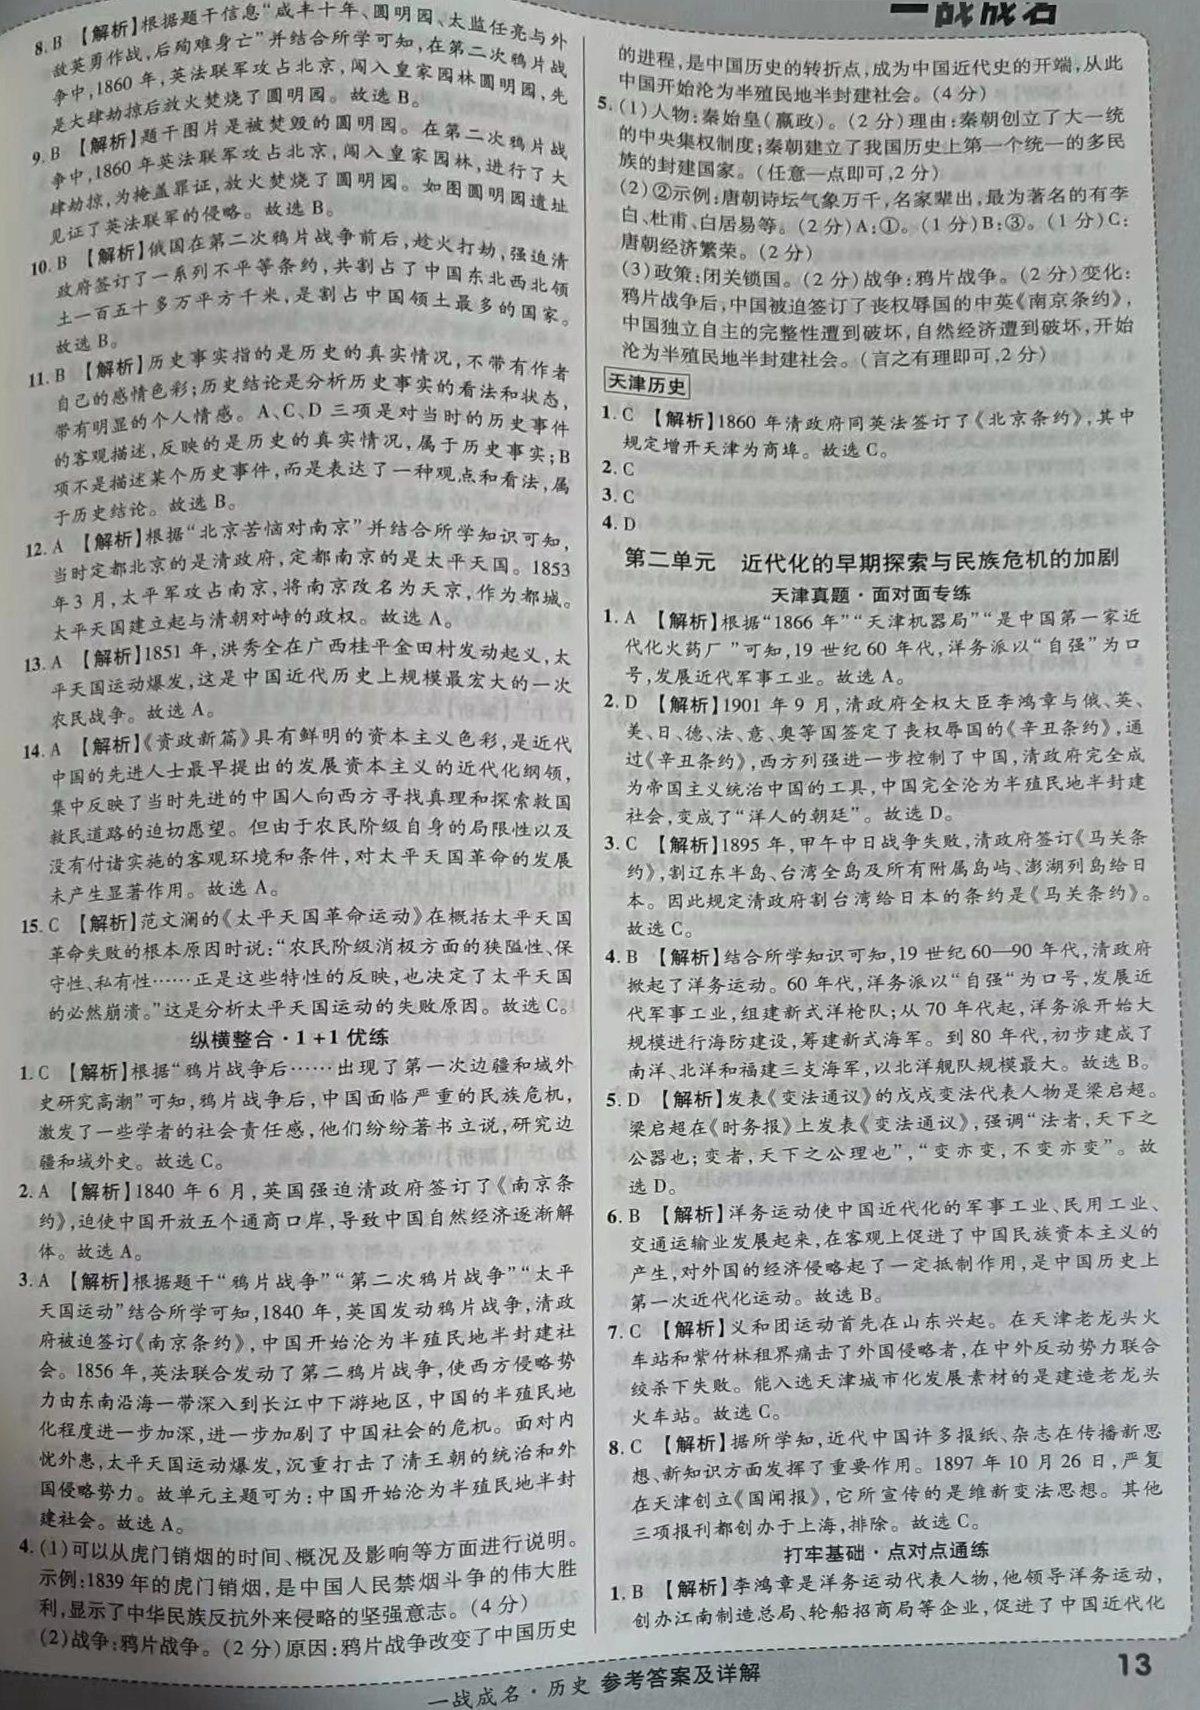 一战成名
8. B 【解析】根据题干信息“咸丰十年、圆明园、太监任亮与外
敌英勇作战，后殉难身亡”并结合所学可知，在第二次鸦片战
争中，1860年，英法联军攻占北京，闯入皇家园林圆明园，先
是大肆劫掠后放火焚烧了圆明园。故选B。
9. B 【解析】题干图片是被焚毁的圆明园。在第二次鸦片战
争中，1860年英法联军攻占北京，闯入皇家园林，进行了大
肆劫掠，为掩盖罪证，放火焚烧了圆明园。如图圆明园遗址
见证了英法联军的侵略。故选B。
10. B 【解析】俄国在第二次鸦片战争前后，趁火打劫，强迫清
政府签订了一系列不平等条约，共割占了中国东北西北领
土一百五十多万平方千米，是割占中国领土最多的国家。
故选B。
11. B 【解析】历史事实指的是历史的真实情况，不带有作者
自己的感情色彩；历史结论是分析历史事实的看法和状态，
带有明显的个人情感。A、C、D三项是对当时的历史事件
的客观描述，反映的是历史的真实情况，属于历史事实；B
项不是描述某个历史事件，而是表达了一种观点和看法，属
于历史结论。故选B。
12. A 【解析】根据“北京苦恼对南京”并结合所学知识可知，
当时定都北京的是清政府，定都南京的是太平天国。1853
年3月，太平军攻占南京，将南京改名为天京，作为都城。
太平天国建立起与清朝对峙的政权。故选A。
13. A 【解析】1851年，洪秀全在广西桂平金田村发动起义，太
平天国运动爆发，这是中国近代历史上规模最宏大的一次
农民战争。故选A。
14. A 【解析】《资政新篇》具有鲜明的资本主义色彩，是近代
中国的先进人士最早提出的发展资本主义的近代化纲领，
集中反映了当时先进的中国人向西方寻找真理和探索救国
救民道路的迫切愿望。但由于农民阶级自身的局限性以及
没有付诸实施的客观环境和条件，对太平天国革命的发展
未产生显著作用。故选A。
15. C 【解析】范文澜的《太平天国革命运动》在概括太平天国
革命失败的根本原因时说：“农民阶级消极方面的狭隘性、保
守性、私有性……正是这些特性的反映，也决定了太平天国
的必然崩溃。”这是分析太平天国运动的失败原因。故选C。
纵横整合·1+1优练
1. C 【解析】根据“鸦片战争后……出现了第一次边疆和域外
史研究高潮”可知，鸦片战争后，中国面临严重的民族危机，
激发了一些学者的社会责任感，他们纷纷著书立说，研究边
疆和域外史。故选C。
2. A 【解析】1840年6月，英国强迫清政府签订了《南京条
约》，迫使中国开放五个通商口岸，导致中国自然经济逐渐解
体。故选A。
3. A 【解析】根据题干“鸦片战争”“第二次鸦片战争”“太平
天国运动”结合所学可知，1840年，英国发动鸦片战争，清政
府被迫签订《南京条约》，中国开始沦为半殖民地半封建社
会。1856年，英法联合发动了第二鸦片战争，使西方侵略势
力由东南沿海一带深入到长江中下游地区，中国的半殖民地
化程度进一步加深，进一步加剧了中国社会的危机。面对内
忧外患，太平天国运动爆发，沉重打击了清王朝的统治和外
国侵略势力。故单元主题可为：中国开始沦为半殖民地半封
建社会。故选A。
4. (1)可以从虎门销烟的时间、概况及影响等方面进行说明。
示例：1839年的虎门销烟，是中国人民禁烟斗争的伟大胜
利，显示了中华民族反抗外来侵略的坚强意志。(4分)
(2)战争：鸦片战争。(2分)原因：鸦片战争改变了中国历史
的进程，是中国历史的转折点，成为中国近代史的开端，从此
中国开始沦为半殖民地半封建社会。(4分)
5. (1)人物：秦始皇(嬴政)。(2分)理由：秦朝创立了大一统
的中央集权制度；秦朝建立了我国历史上第一个统一的多民
族的封建国家。(任意一点即可，2分)
(2)②示例：唐朝诗坛气象万千，名家辈出，最为著名的有李
白、杜甫、白居易等。(2分)A：①。(1分)B：③。(1分)C：
唐朝经济繁荣。(2分)
(3)政策：闭关锁国。(2分)战争：鸦片战争。(2分)变化：
鸦片战争后，中国被迫签订了丧权辱国的中英《南京条约》，
中国独立自主的完整性遭到破坏，自然经济遭到破坏，开始
沦为半殖民地半封建社会。(言之有理即可，2分)
天津历史
1. C 【解析】1860年清政府同英法签订了《北京条约》，其中
规定增开天津为商埠。故选C。
2. C
3. C
4. D
第二单元 近代化的早期探索与民族危机的加剧
天津真题·面对面专练
1. A 【解析】根据“1866年”“天津机器局”“是中国第一家近
代化火药厂”可知，19世纪60年代，洋务派以“自强”为口
号，发展近代军事工业。故选A。
2. D 【解析】1901年9月，清政府全权大臣李鸿章与俄、英、
美、日、德、法、意、奥等国签定了丧权辱国的《辛丑条约》，通
过《辛丑条约》，西方列强进一步控制了中国，清政府完全成
为帝国主义统治中国的工具，中国完全沦为半殖民地半封建
社会，变成了“洋人的朝廷”。故选D。
3. C 【解析】1895年，甲午中日战争失败，清政府签订《马关条
约》，割辽东半岛、台湾全岛及所有附属岛屿、澎湖列岛给日
本。因此规定清政府割台湾给日本的条约是《马关条约》。
故选C。
4. B 【解析】结合所学知识可知，19世纪60—90年代，清政府
掀起了洋务运动。60年代，洋务派以“自强”为口号，发展近
代军事工业，组建新式洋枪队；从70年代起，洋务派开始大
规模进行海防建设，筹建新式海军。到80年代，初步建成了
南洋、北洋和福建三支海军，以北洋舰队规模最大。故选B。
5. D 【解析】发表《变法通议》的戊戌变法代表人物是梁启超。
梁启超在《时务报》上发表《变法通议》，强调“法者，天下之
公器也；变者，天下之公理也”，“变亦变，不变亦变”。故
选D。
6. B 【解析】洋务运动使中国近代化的军事工业、民用工业、
交通运输业发展起来，在客观上促进了中国民族资本主义的
产生，对外国的经济侵略起了一定抵制作用，是中国历史上
第一次近代化运动。故选B。
7. C 【解析】义和团运动首先在山东兴起。在天津老龙头火
车站和紫竹林租界痛击了外国侵略者，在中外反动势力联合
绞杀下失败。能入选天津城市化发展素材的是建造老龙头
火车站。故选C。
8. C 【解析】据所学知，近代中国许多报纸、杂志在传播新思
想、新知识方面发挥了重要作用。1897年10月26日，严复
在天津创立《国闻报》，它所宣传的是维新变法思想。其他
三项报刊都创办于上海，排除。故选C。
打牢基础·点对点通练
1. B 【解析】李鸿章是洋务运动代表人物，他领导洋务运动，
创办江南制造总局、轮船招商局等企业，促进了中国近代化
一战成名·历史 参考答案及详解
13